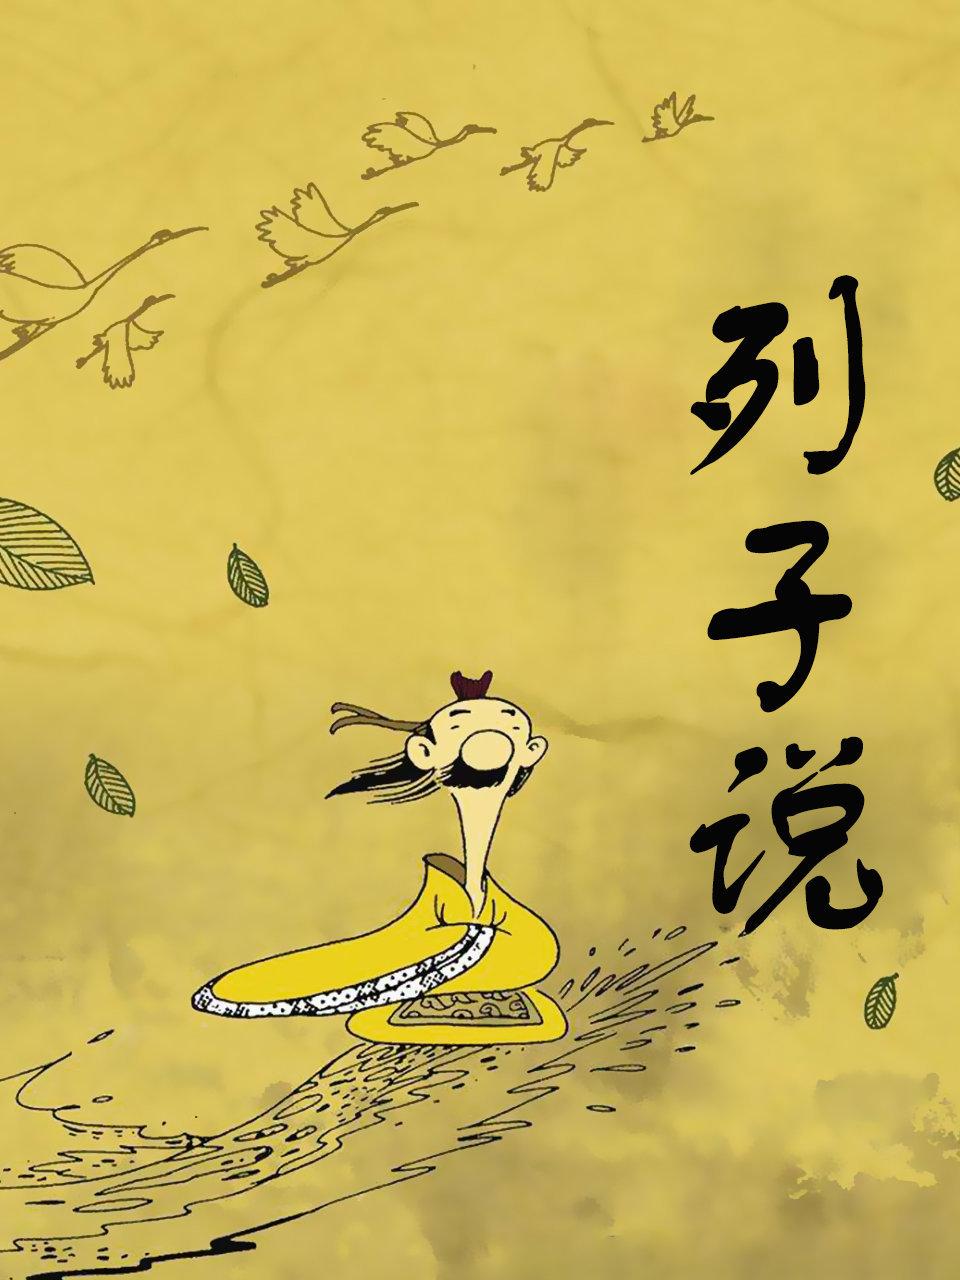 列子说